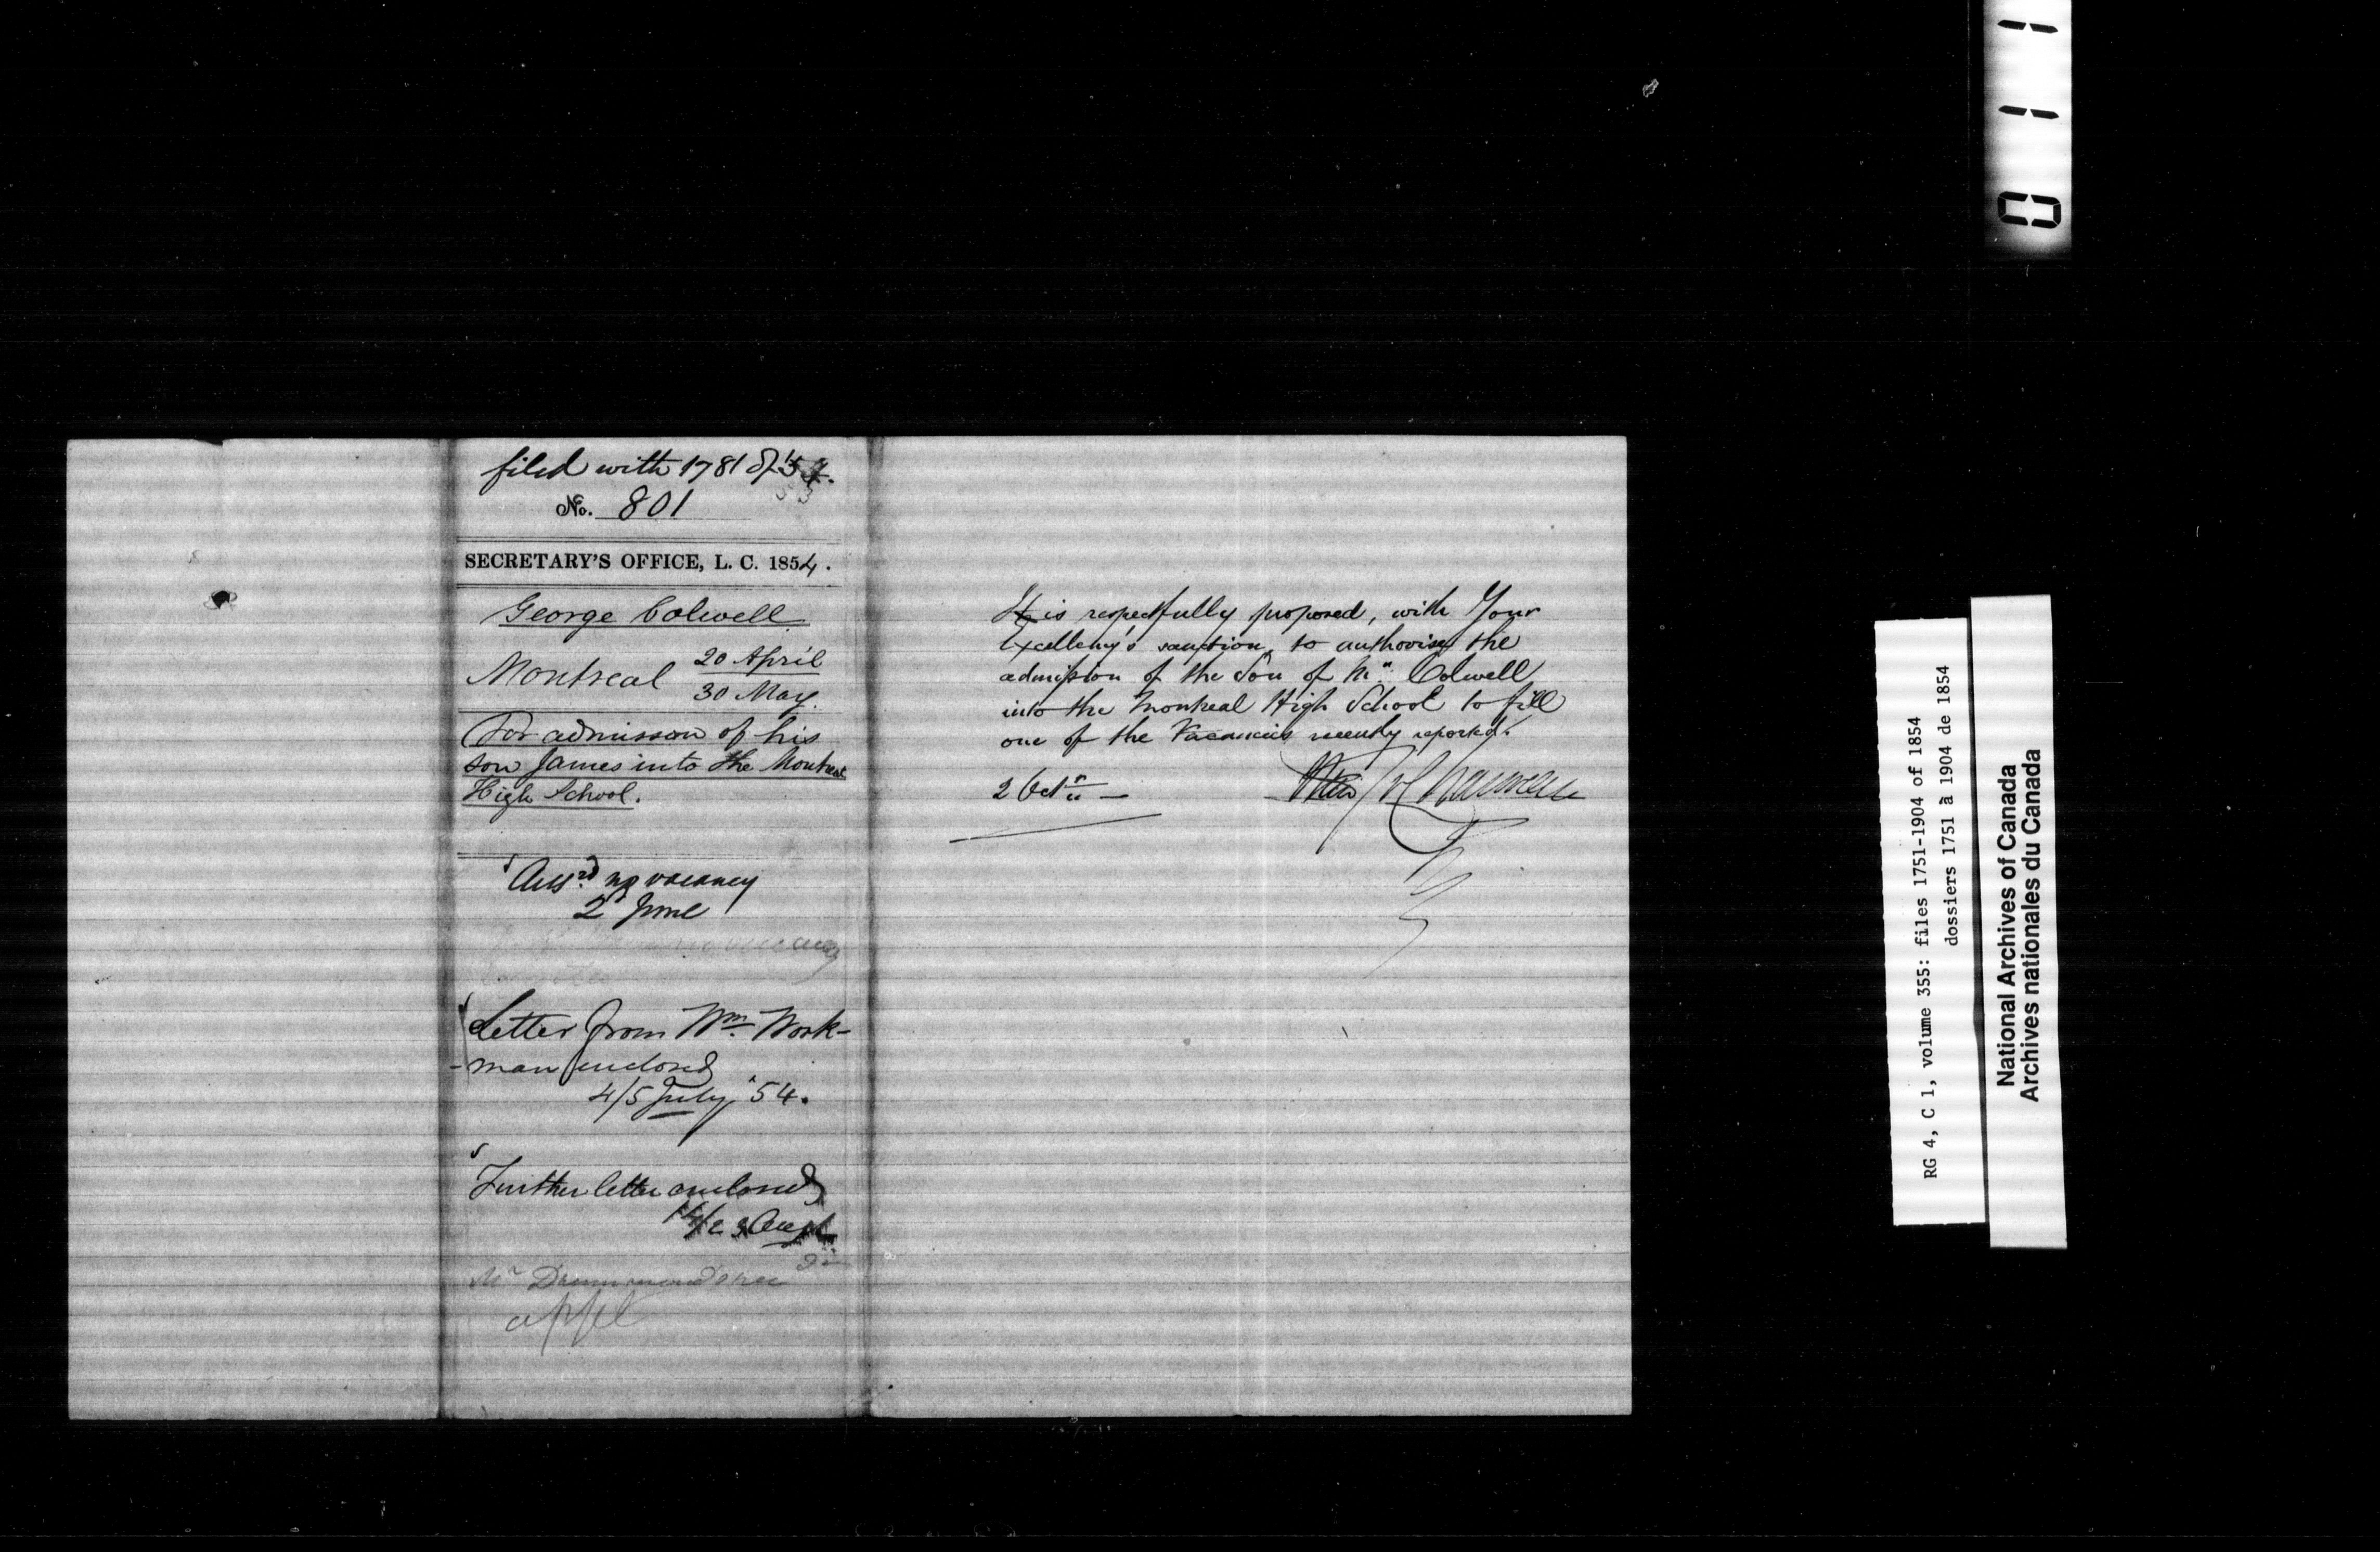 filed with 1781 of 54.
53
No. 801
SECRETARY'S OFFICE, L. C. 1854.
George Colwell
Montreal 20 April
30 May.
For admisson of his
son James into the Montreal
High School.
Ansd. no vacancy
2 June
vacancy
Letter from Wm. Work-
-man enclosed
4/5 July '54.
Further letter enclosed
Mr Drummond
It is respectfully proposed, with Your
Excellency's sanction, to authorise the
admission of the Son of Mr. Colwell
into the Montreal High School to fill
one of the Vacancies recently reported.
2 Octr. —
Chauveau
0111
RG 4, C 1, volume 355: files 1751-1904 of 1854
dossiers 1751 à 1904 de 1854
National Archives of Canada
Archives nationales du Canada